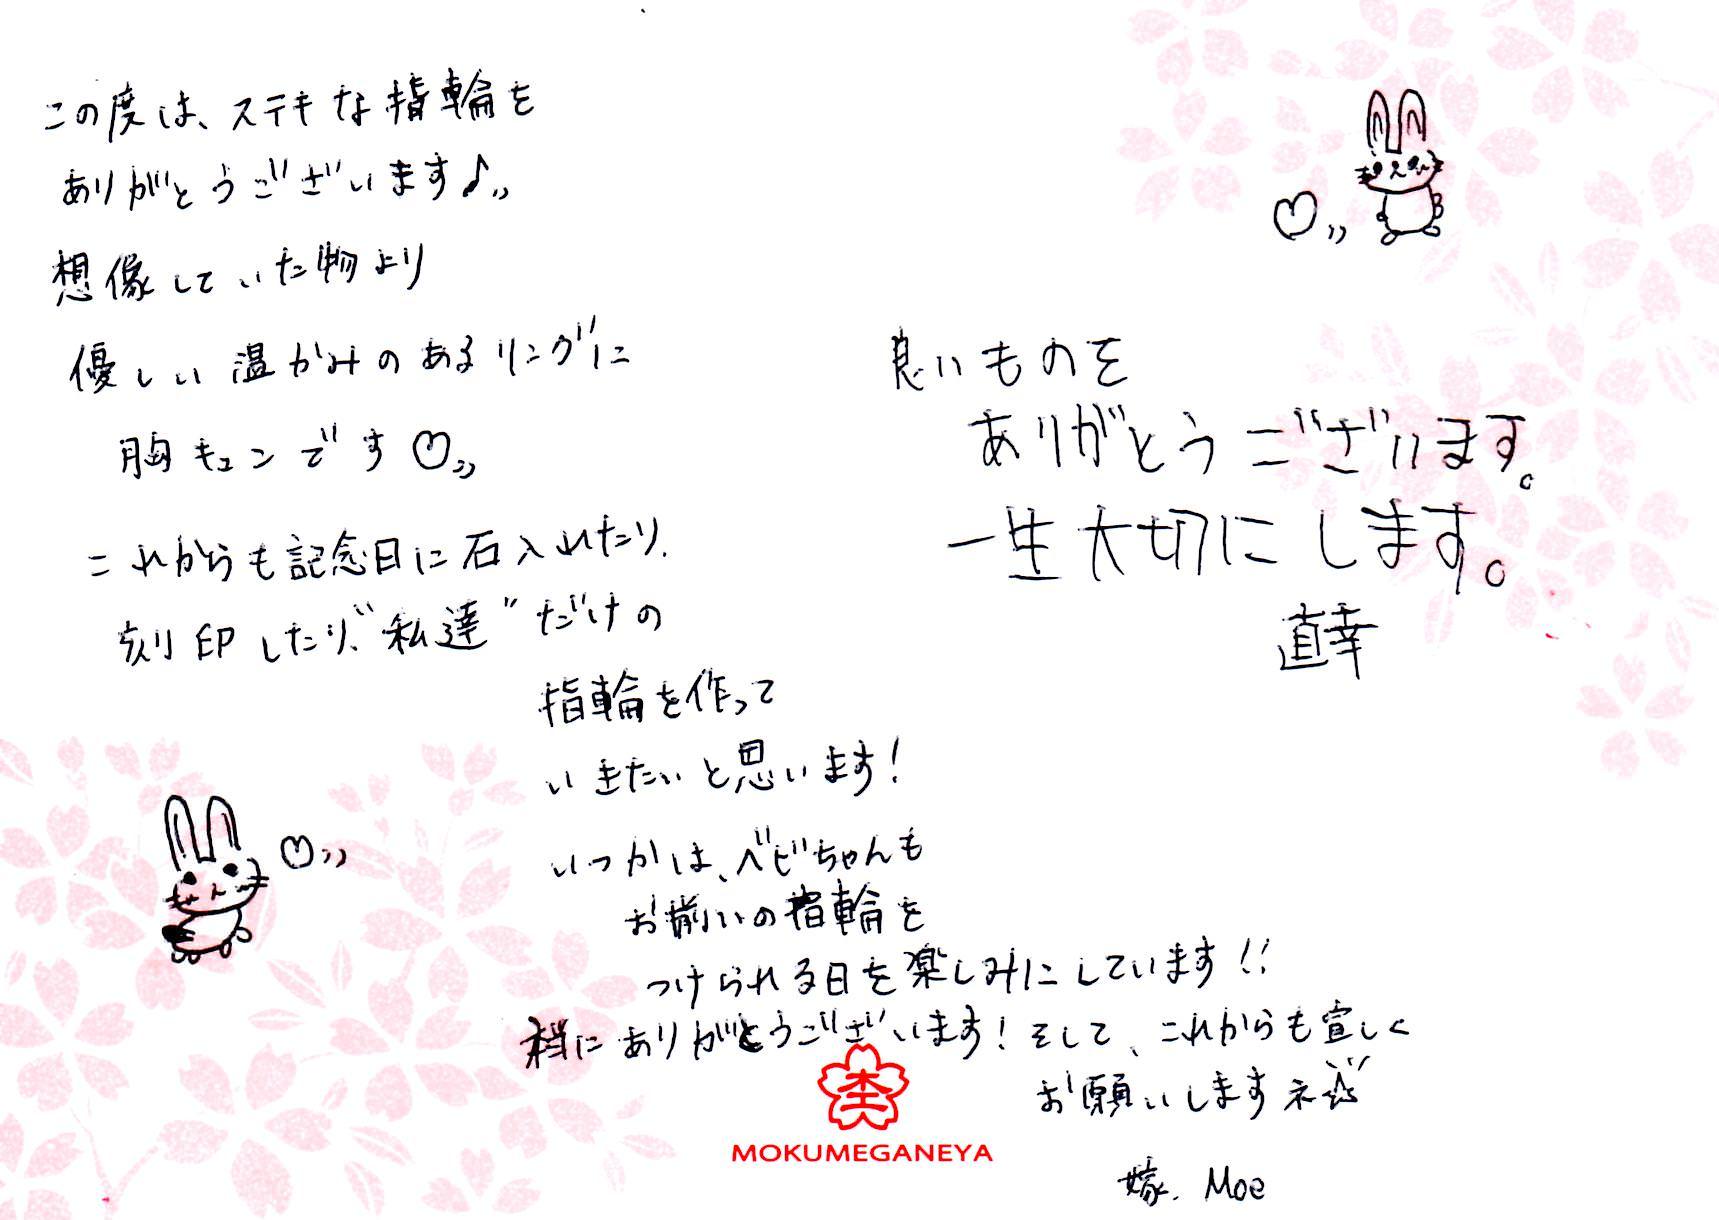 この度は、ステキな指輪を
ありがとうございます♪
想像していた物より
優しい温かみのあるリングに
胸キュンです♡
これからも記念日に石入れたり、
刻印したり、“私達”だけの
指輪を作って
いきたいと思います!
いつかは、ベビちゃんも
お揃いの指輪を
つけられる日を楽しみにしています!!
本当にありがとうございます!そして、これからも宜しく
お願いしますネ☆
嫁. Moe
良いものを
ありがとうございます。
一生大切にします。
直幸
杢
MOKUMEGANEYA